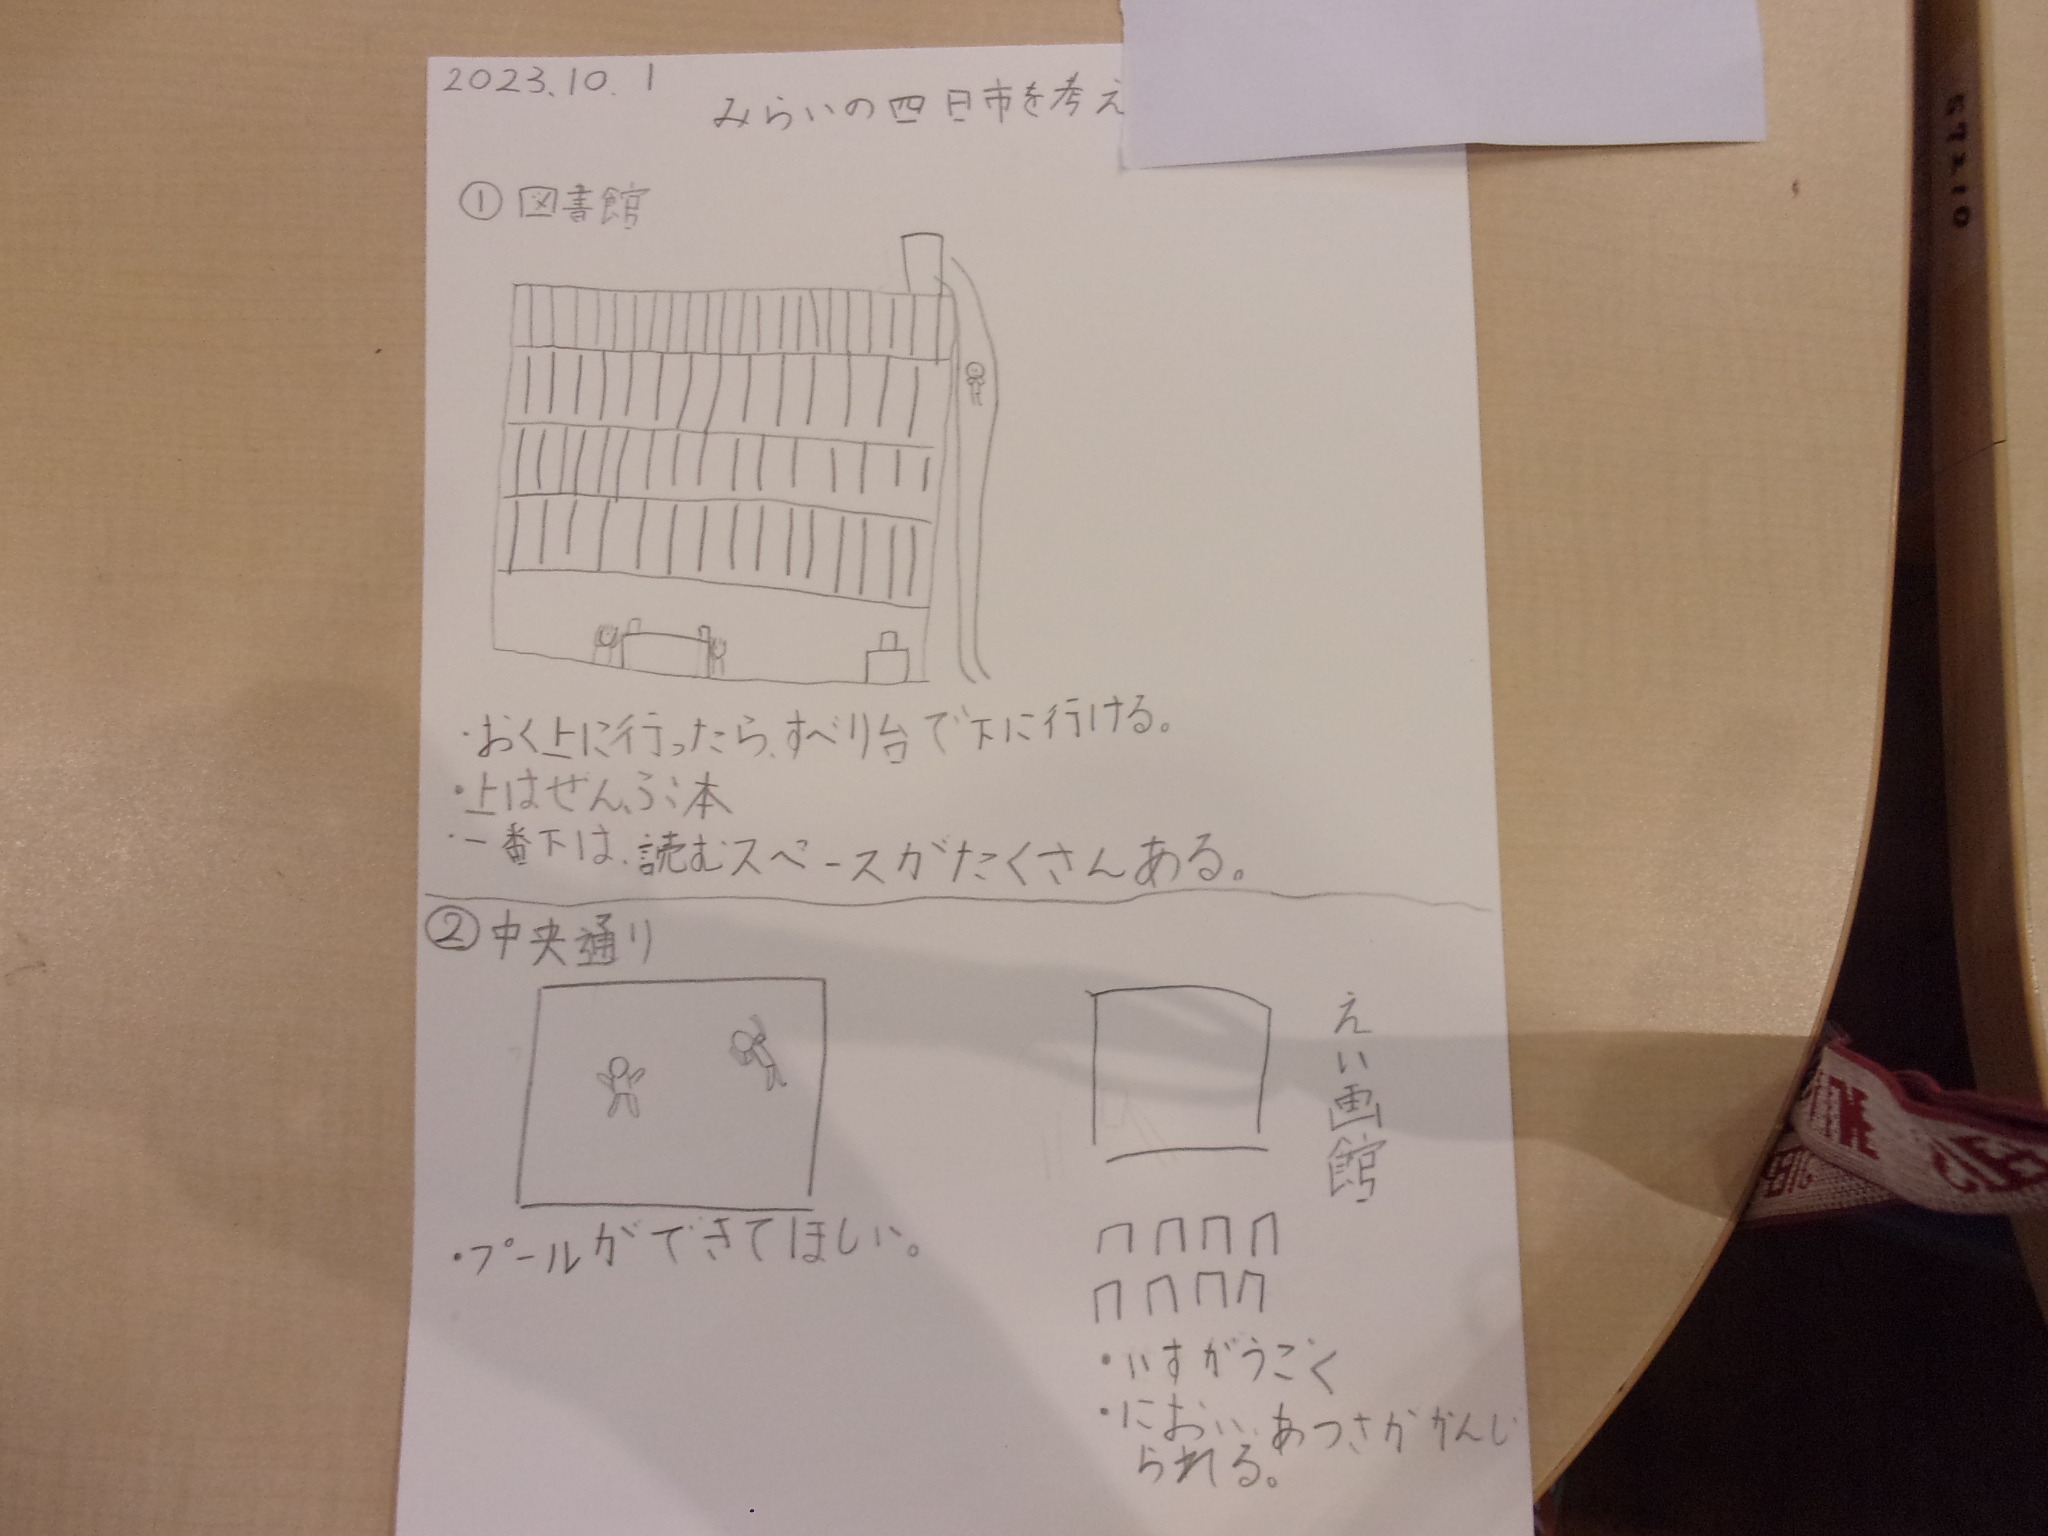 2023.10.1
みらいの四日市を考え
① 図書館
・おく上に行ったら、すべり台で下に行ける。
・上はぜんぶ本
・一番下は、読むスペースがたくさんある。
② 中央通り
・プールができてほしい。
えい画館
・いすがうごく
・におい、あつさがかんじ
られる。
57×10